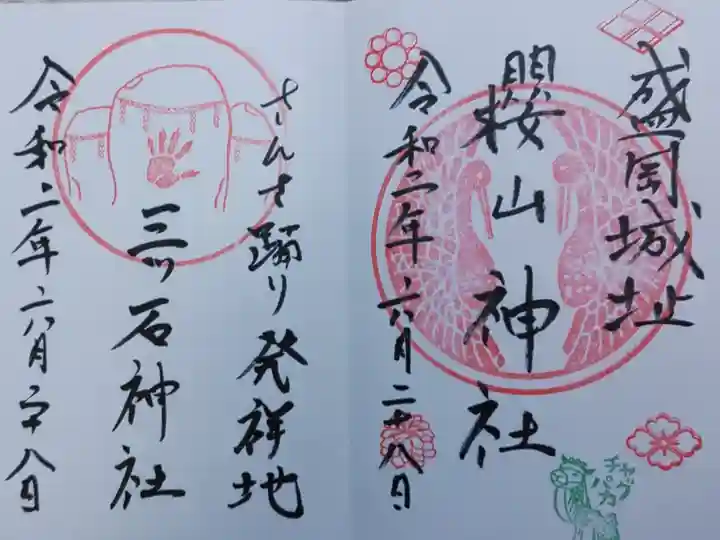 盛岡城址
櫻山神社
令和二年六月二十八日
チャグ
バカ
さんさ踊り発祥地
三ツ石神社
令和二年六月二十八日